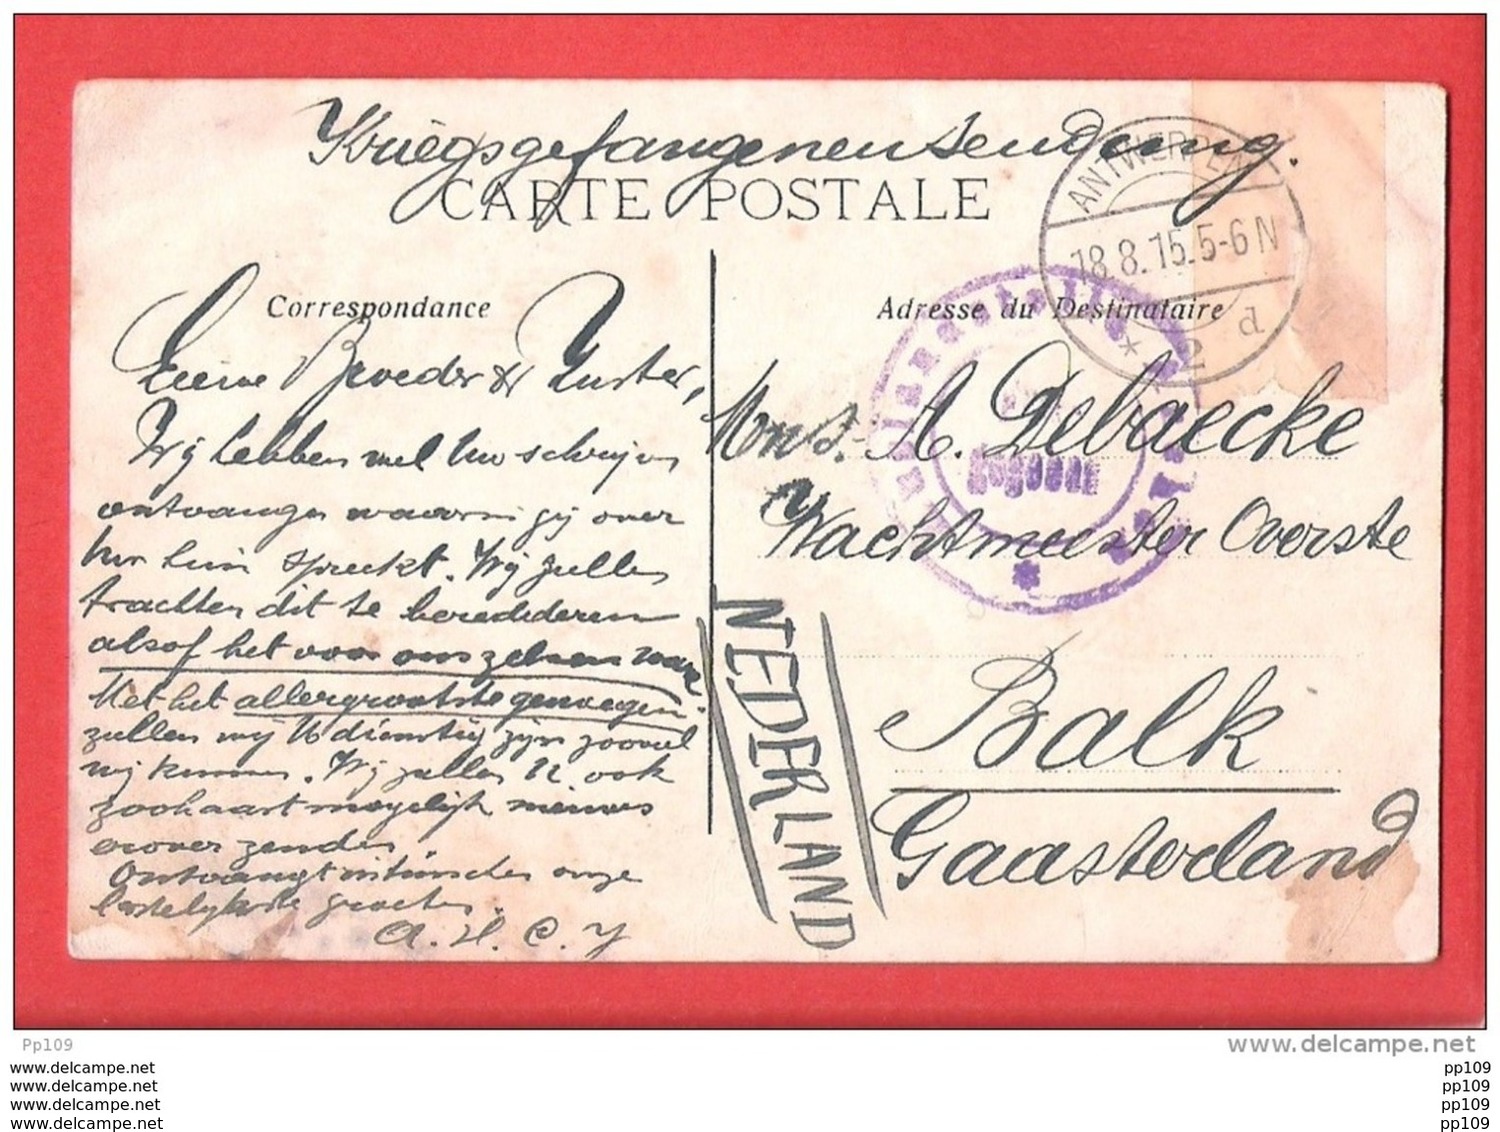 Kriegsgefangenensendung.
CARTE POSTALE
ANTWERPEN
18.8.15.5-6N
* 2 d
Correspondance
Adresse du Destinataire
Broeder & Zuster,
Wij hebben wel Uw schrijven
ontvangen waarin gij over
spreekt. Wij zullen
trachten dit te
alsof het voor ons zelven ware
Met het allergrootste genoegen
zullen wij U dienstig zijn zooveel
wij kunnen. Wij zullen U ook
zoohaast mogelijk nieuws
erover zenden.
Ontvangt intusschen onze
hartelijkste groeten.
A. H. C. Y
Mons. A. Debaecke
Wachtmeester Overste
Balk
Gaasterland
NEDERLAND
Auslandstelle
Pp109
www.delcampe.net
www.delcampe.net
www.delcampe.net
www.delcampe.net
www.delcampe.net
pp109
pp109
pp109
pp109